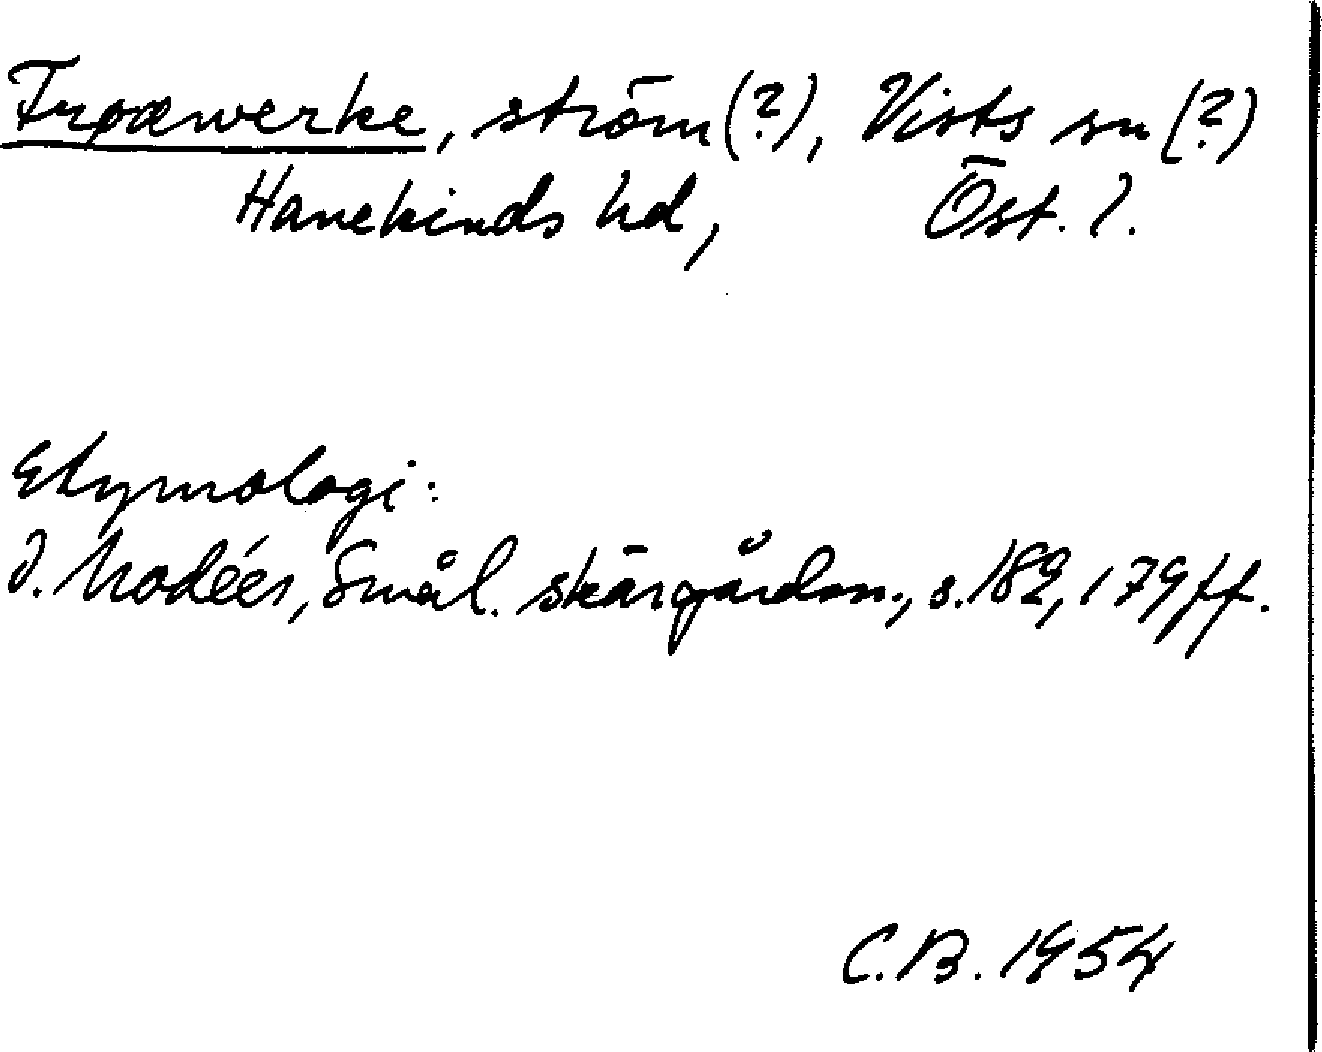 Frøæwerke, ström (?), Vists sn (?)
Hanekinds hd, Öst. l.
Etymologi:
I. Modéer, Smål. skärgårdsn., s. 182, 179 ff.
C.B. 1954